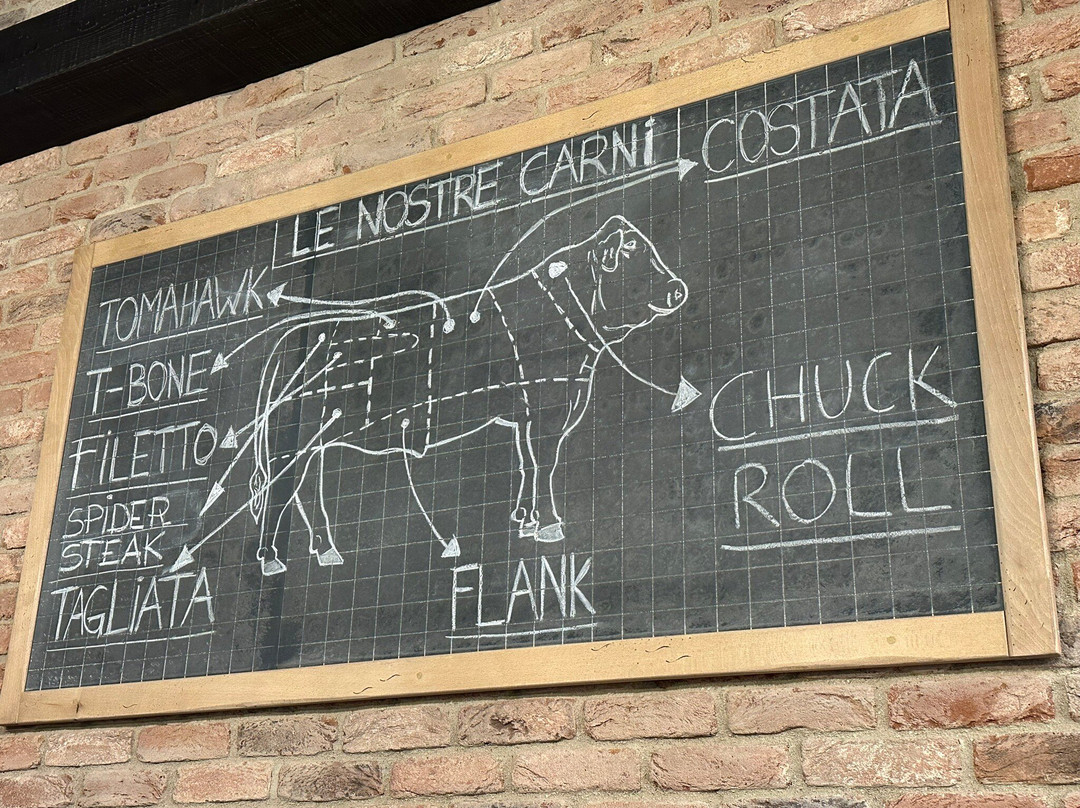 LE NOSTRE CARNi
COSTATA
TOMAHAWK
T-BONE
FiLETTO
SPiDER
STEAK
TAGLiATA
FLANK
CHUCK
ROLL